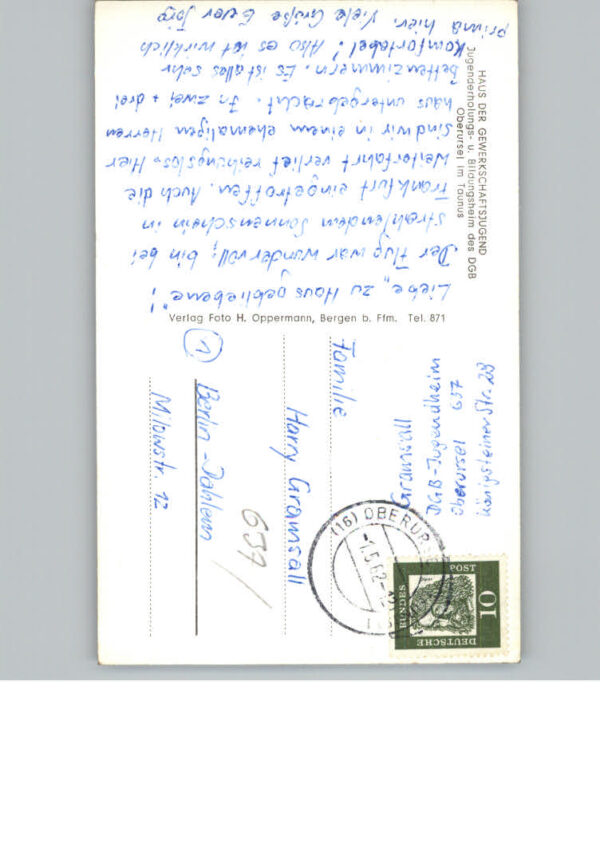 HAUS DER GEWERKSCHAFTSJUGEND
Jugenderholungs- u. Bildungsheim des DGB
Oberursel im Taunus
Liebe „zu Haus gebliebene"!
Der Flug war wundervoll; bin bei
strahlendem Sonnenschein in
Frankfurt eingetroffen. Auch die
Weiterfahrt verlief reibungslos. Hier
sind wir in einem ehemaligen Herren
haus untergebracht. In zwei + drei
bettenzimmern. Es ist alles sehr
Komfortabel! Also es ist wirklich
prima hier. Viele Grüße Euer Jörg
Verlag Foto H. Oppermann, Bergen b. Ffm. Tel. 871
Gramsall
DGB-Jugendheim
Oberursel 657
Königsteiner Str. 29
Familie
Harry Gramsall
1 Berlin-Dahlem
Milowstr. 12
637/
(16) OBERURSEL
-1.5.62-
DEUTSCHE
BUNDES
POST
10